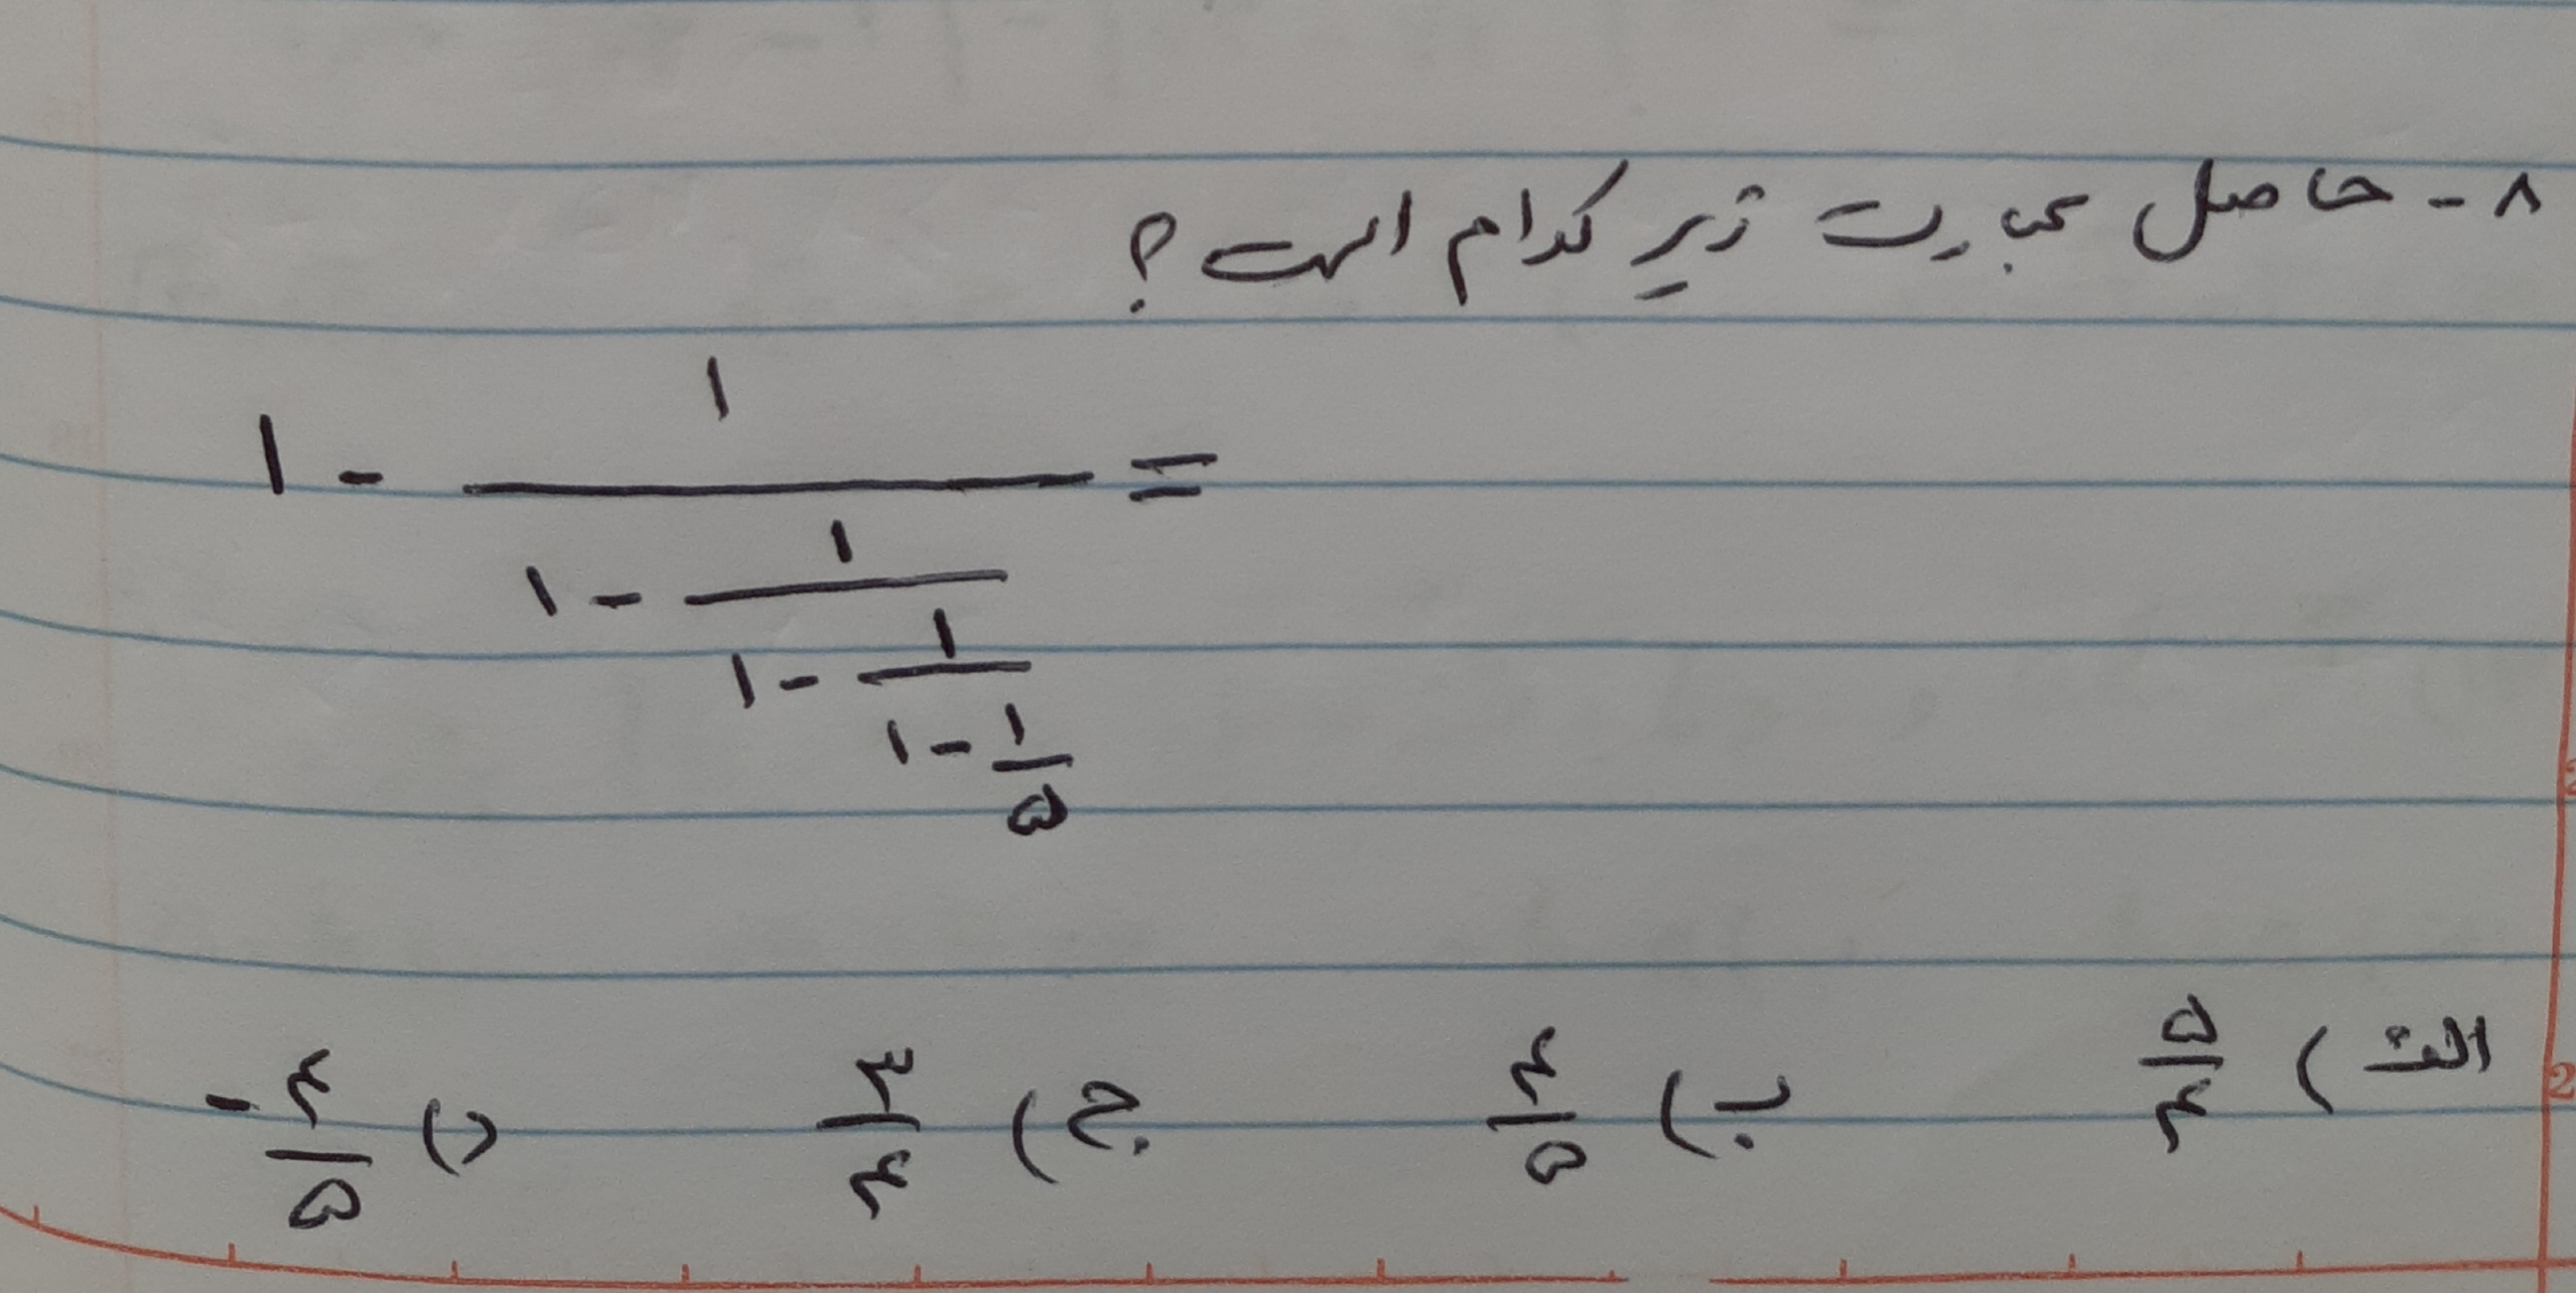 ۸- حاصل عبارت زیر کدام است؟
۱ - ۱/(۱ - ۱/(۱ - ۱/(۱ - ۱/۵))) =
الف) ۵/۴ ب) ۴/۵ ج) ۳/۴ د) -۴/۵